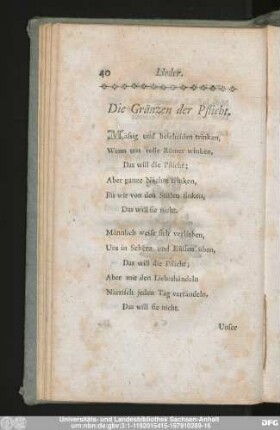 40 Lieder.
Die Gränzen der Pflicht.
Mäsig und bescheiden trinken,
Wenn uns volle Römer winken,
Das will die Pflicht;
Aber ganze Nächte trinken,
Bis wir von den Stülen sinken,
Das will sie nicht.
Männlich weise sich verlieben,
Uns in Scherz und Küssen üben,
Das will die Pflicht;
Aber mit den Liebeshändeln
Niemals jeden Tag vertändeln,
Das will sie nicht.
Unser
Universitäts- und Landesbibliothek Sachsen-Anhalt
urn:nbn:de:gbv:3:1-1192015415-157910269-16